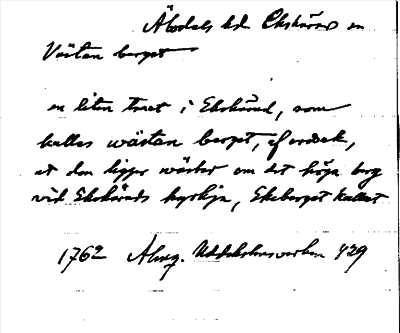 Ekshärad en
Västan berget
en liten tract i Ekshärad, som
kallas wästan berget, af orsak,
at den ligger wäster om det höga berg
vid Ekshärads kyrkja, Ekeberget kallat
1762 Uddeholmsverken 429